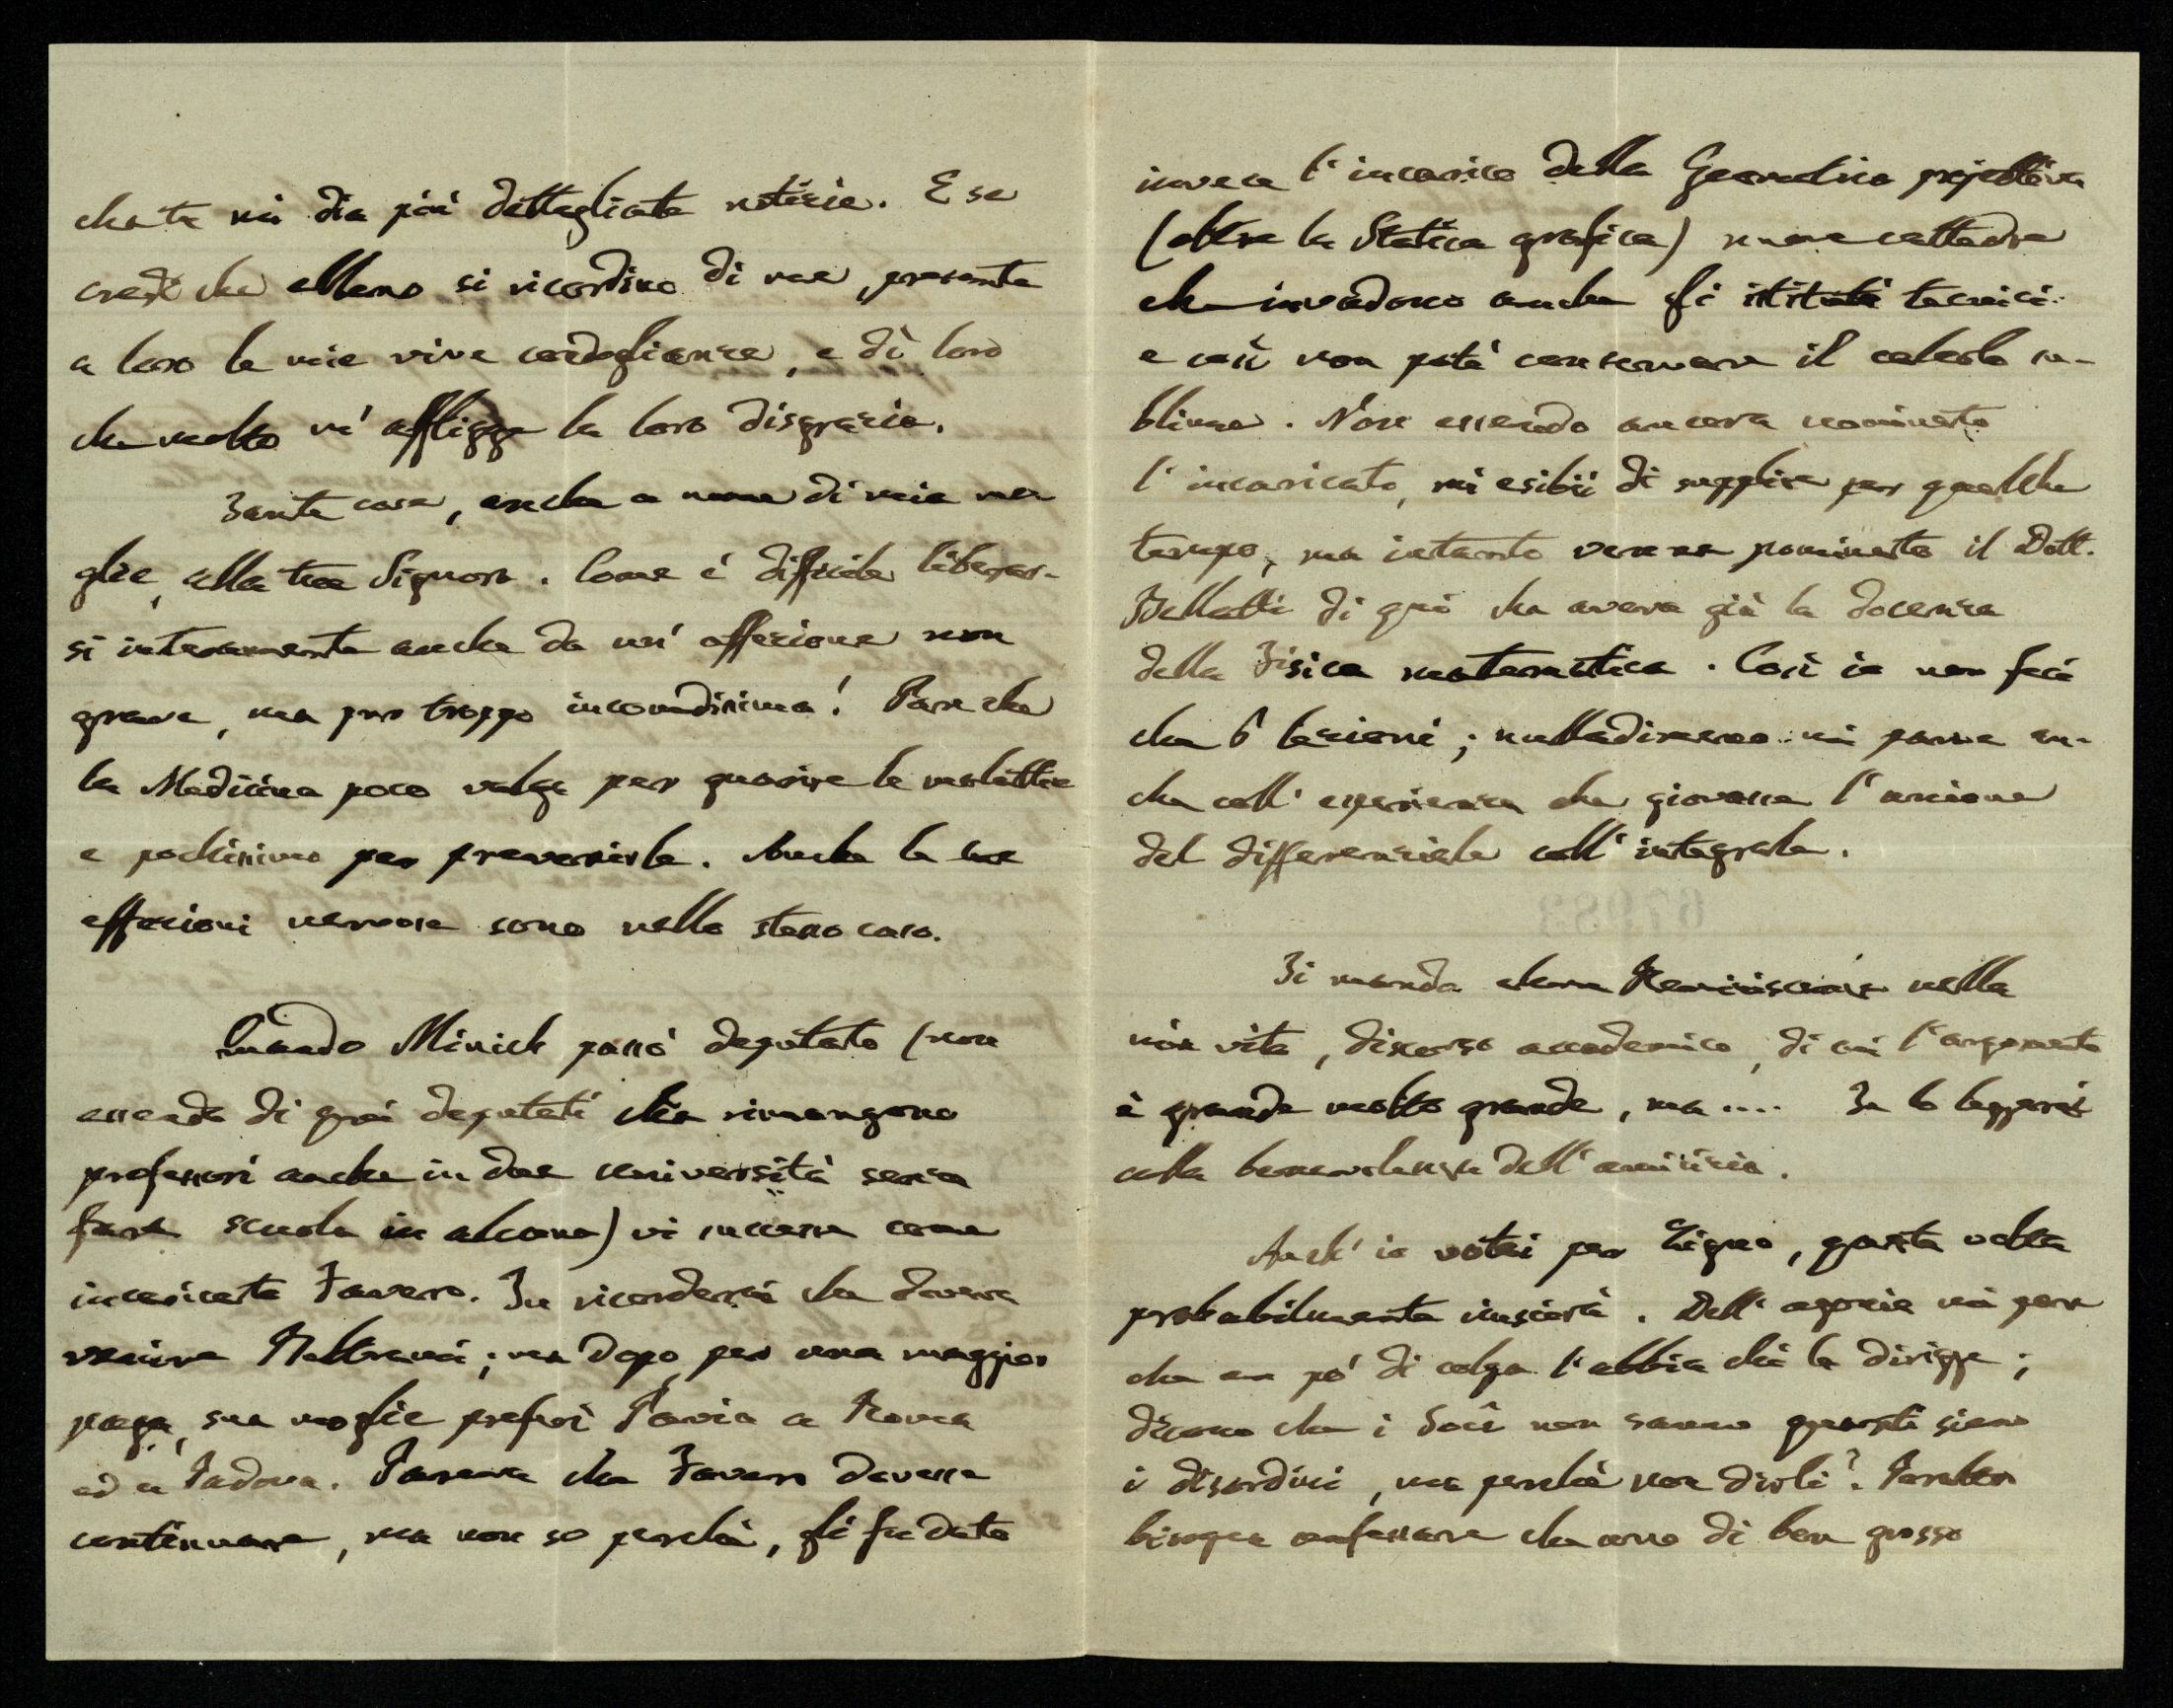 che tu mi dia più dettagliate notizie. E se
credi che elleno si ricordino di me, presenta
a loro le mie vive condoglianze, e dì loro
che molto m' affligge la loro disgrazia.
Tante cose, anche a nome di mia mo
glie, alla tua Signora. Come è difficile liberar-
si interamente anche da un' affezione non
grave, ma pur troppo incomodissima! Pare che
la Medicina poco valga per guarire le malattie
e pochissimo per prevenirle. Anche le tue
affezioni nervose sono nello stesso caso.
Quando Minich passò deputato (non
essendo di quei deputati che rimangono
professori anche in due università senza
fare scuola in alcuna) vi successe come
incaricato Favero. Tu ricorderai che doveva
venire Beltrami; ma dopo, per una maggior
paga, sua moglie preferì Pavia a Roma
ed a Padova. Pareva che Favero dovesse
continuare, ma non so perchè, gli fu dato
invece l' incarico della Geometria projettiva
(oltre la Statica grafica) nuove cattedre
che invadono anche gli istituti tecnici
e così non potè conservare il calcolo su-
blime. Non essendo ancora nominato
l' incaricato, mi esibii di supplire per qualche
tempo, ma intanto venne nominato il Dott.
di qui che aveva già la docenza
della Fisica matematica. Così io non feci
che 6 lezioni; nulladimeno mi parve an-
che coll' esperienza che giovasse l' unione
del differenziale coll' integrale.
Ti mando alcune Reminiscenze nella
mia vita, discorso accademico, di cui l' argomento
è grande molto grande, ma .... Tu lo leggerai
colla benevolenza dell' amicizia.
Anch' io votai per Zigno, questa volta
probabilmente riuscirà. Dell' agonia mi pare
che un pò di colpa l' abbia chi la dirigge;
dicono che i Socî non sanno quanti siano
i disordini, ma perchè non dirli? Parebbe
bisogna confessare che uno di ben grosso